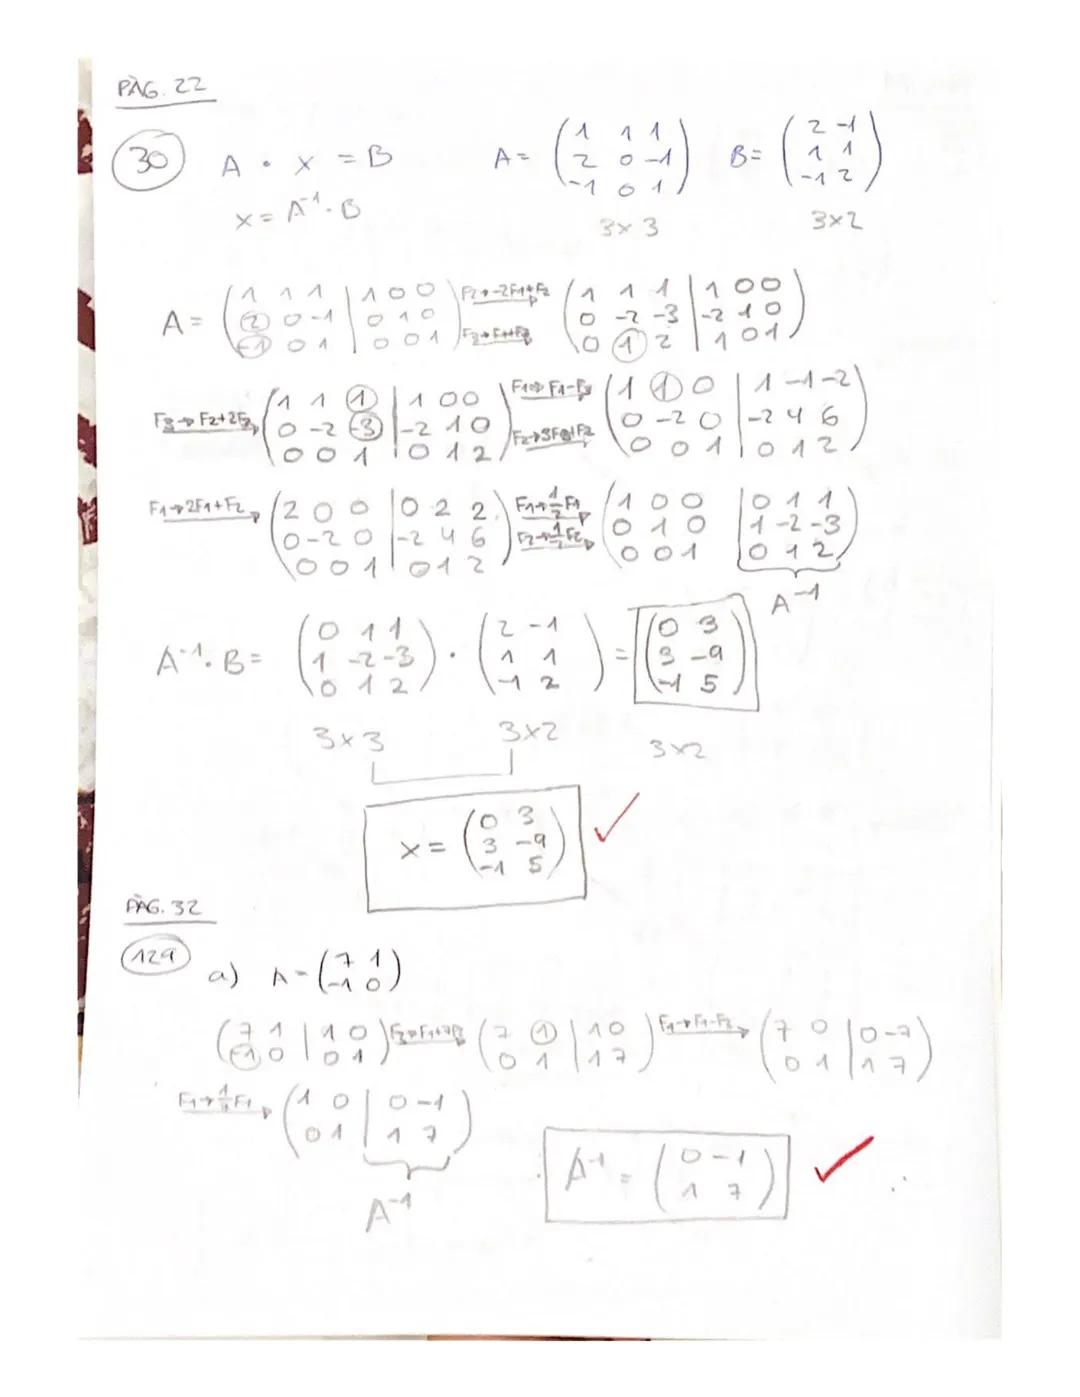 PÀG. 22
30 A · x = B A = (1 1 1 / 2 0 -1 / -1 0 1) B = (2 -1 / 1 1 / -1 2)
x = A⁻¹ · B 3x3 3x2
A = (1 1 1 | 1 0 0 / 2 0 -1 | 0 1 0 / -1 0 1 | 0 0 1) F2→-2F1+F2 (1 1 1 | 1 0 0 / 0 -2 -3 | -2 1 0 / 0 1 2 | 1 0 1)
F3→F2+2F3 (1 1 1 | 1 0 0 / 0 -2 -3 | -2 1 0 / 0 0 1 | 0 1 2) F1→F1-F3 F2→3F3+F2 (1 1 0 | 1 -1 -2 / 0 -2 0 | -2 4 6 / 0 0 1 | 0 1 2)
F1→2F1+F2 (2 0 0 | 0 2 2 / 0 -2 0 | -2 4 6 / 0 0 1 | 0 1 2) F1→1/2 F1 (1 0 0 | 0 1 1 / 0 1 0 | 1 -2 -3 / 0 0 1 | 0 1 2)
A⁻¹
A⁻¹ · B = (0 1 1 / 1 -2 -3 / 0 1 2) · (2 -1 / 1 1 / -1 2) = (0 3 / 3 -9 / -1 5)
3x3 3x2 3x2
x = (0 3 / 3 -9 / -1 5)
PÀG. 32
129 a) A = (7 1 / -1 0)
(7 1 | 1 0 / -1 0 | 0 1) F2→F1+7F2 (7 1 | 1 0 / 0 1 | 1 7) F1→F1-F2 (7 0 | 0 -7 / 0 1 | 1 7)
F1→1/7 F1 (1 0 | 0 -1 / 0 1 | 1 7)
A⁻¹
A⁻¹ = (0 -1 / 1 7)